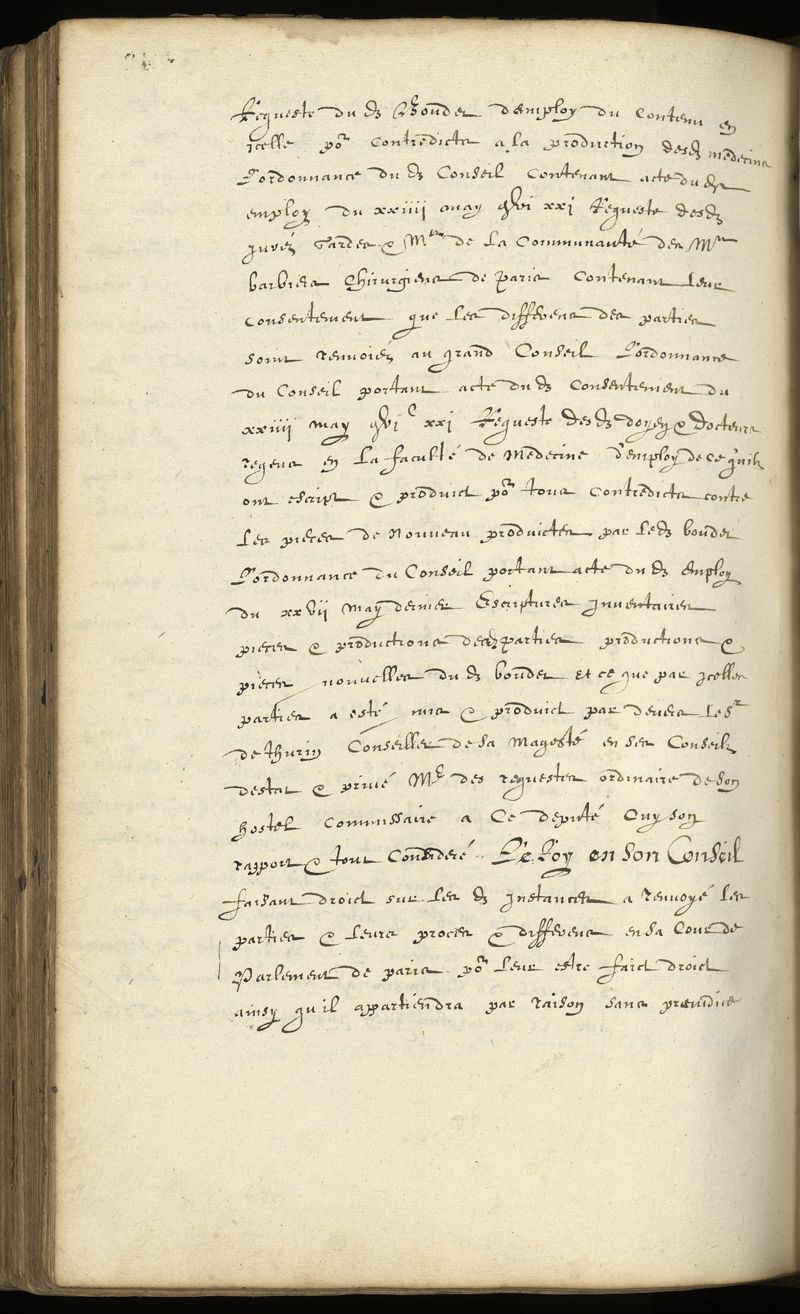 Requeste du d Boudet d'employ du Contenu en
icelle por Contredicts a la production desd medecins
L'ordonnance du d Conseil Contenant acte dud
employ du xxiiii may xvi xxi Requeste desd
jurez Gardes & Mres de la Communauté des Mres
barbiers Chirurgiens de paris Contenant leur
Consentement que les differens des parties
soint renvoiez au grand Conseil L'ordonnance
du Conseil portant acte dud Consentement du
xxiiii may xvi c xxi Requeste desd doyen & docteurs
regens en la faculté de Medecine d'employ de ce quilz
ont escript & produict por tous Contredicts contre
les pieces de Nouveau produictes par led boudet
L'ordonnance du Conseil portant acte du d employ
du xxvii May dernier Escriptures inventaires
pieces & productions desd parties productions &
pieces nouvelles du d boudet Et ce que par icelles
parties a esté mis & produict par devers le Sr
de thurin Conseiller de sa Magesté en ses Conseilz
destat & privé Me des requestes ordinaire de son
hostel Commissaire a Ce deputé Ouy son
rapport & tout Consideré Le Roy en son Conseil
faisant droict sur les d instances a renvoyé les
parties & leurs proces & differens en sa Cour de
Parlement de paris por leur estre faict droict
ainsy qu il appartiendra par raison sans preiudice